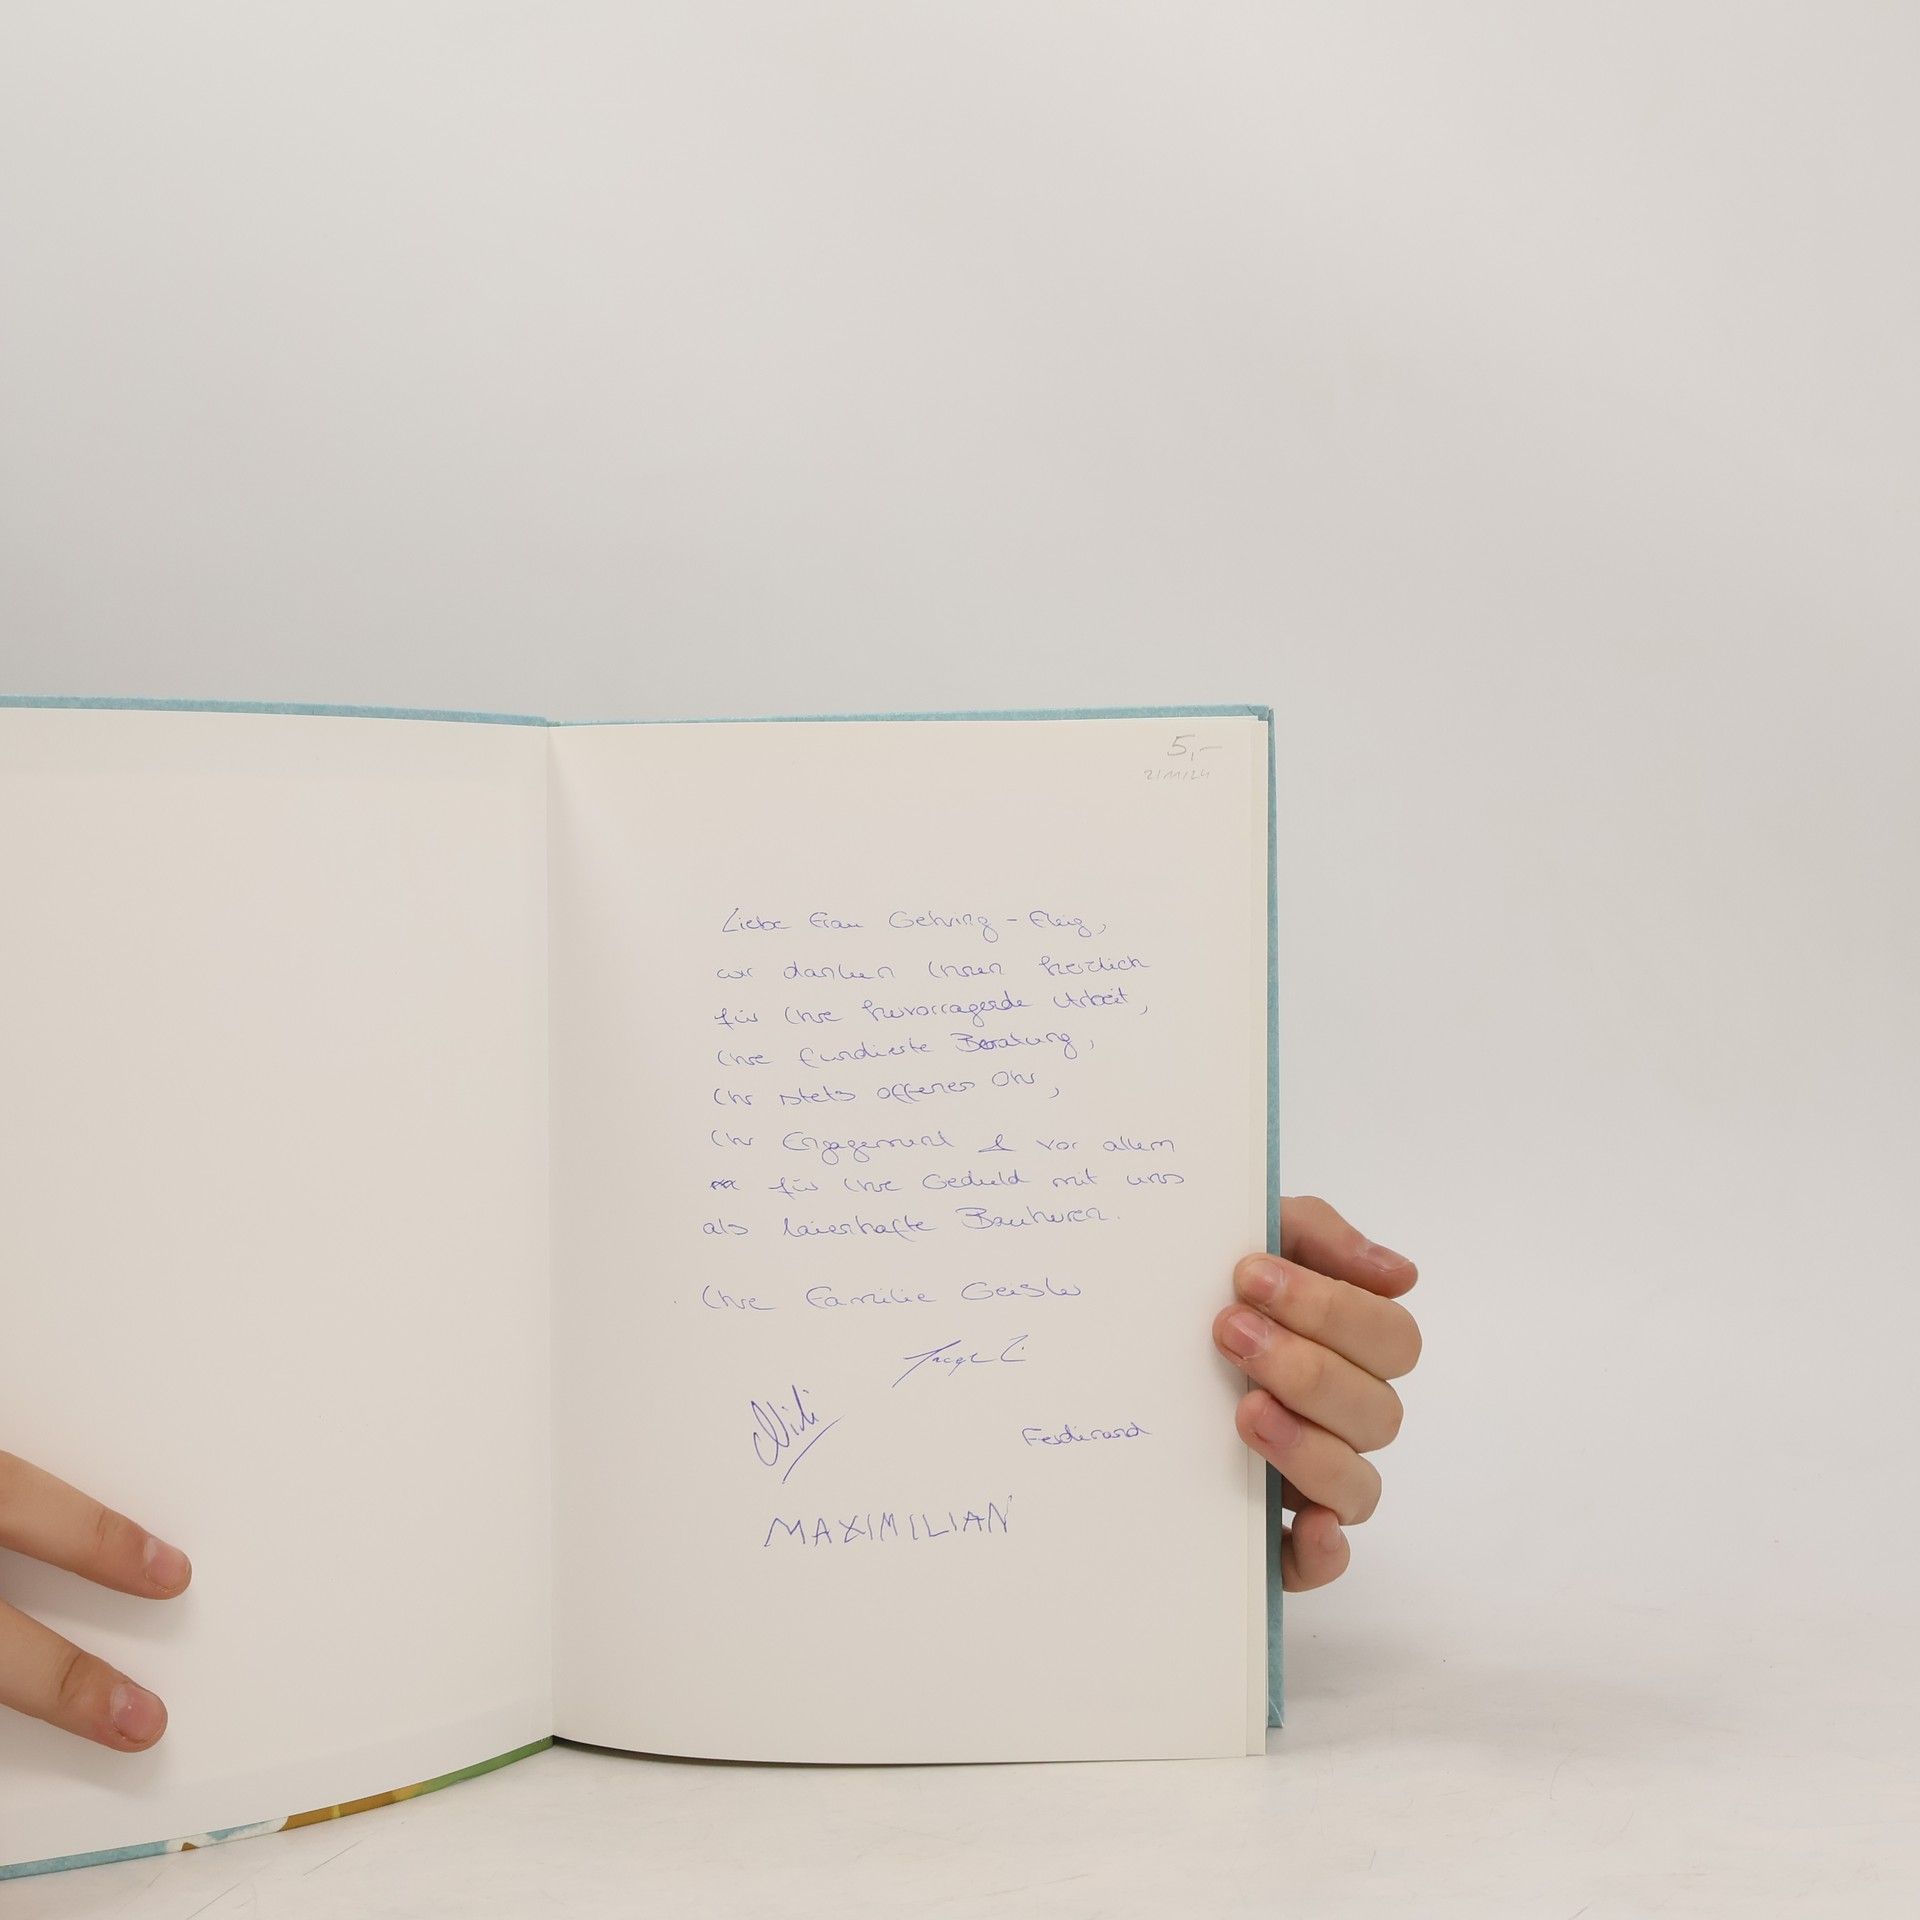 5,-
2/11/24
Liebe Frau Gehring-Fleig,
wir danken Ihnen herzlich
für Ihre hervorragende Arbeit,
Ihre fundierte Beratung,
Ihr stets offenes Ohr,
Ihr Engagement & vor allem
für Ihre Geduld mit uns
als laienhafte Bauherren.
Ihre Familie Geisler
Ferdinand
MAXIMILIAN